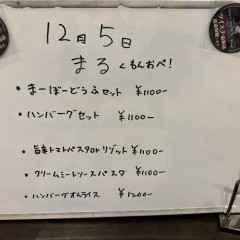 12月5日
まる くもんおぺ!
・まーぼーどうふセット ¥1100-
・ハンバーグセット ¥1100-
・旨辛トマトパスタorリゾット ¥1100-
・クリームミートソースパスタ ¥1100-
・ハンバーグオムライス ¥1200-